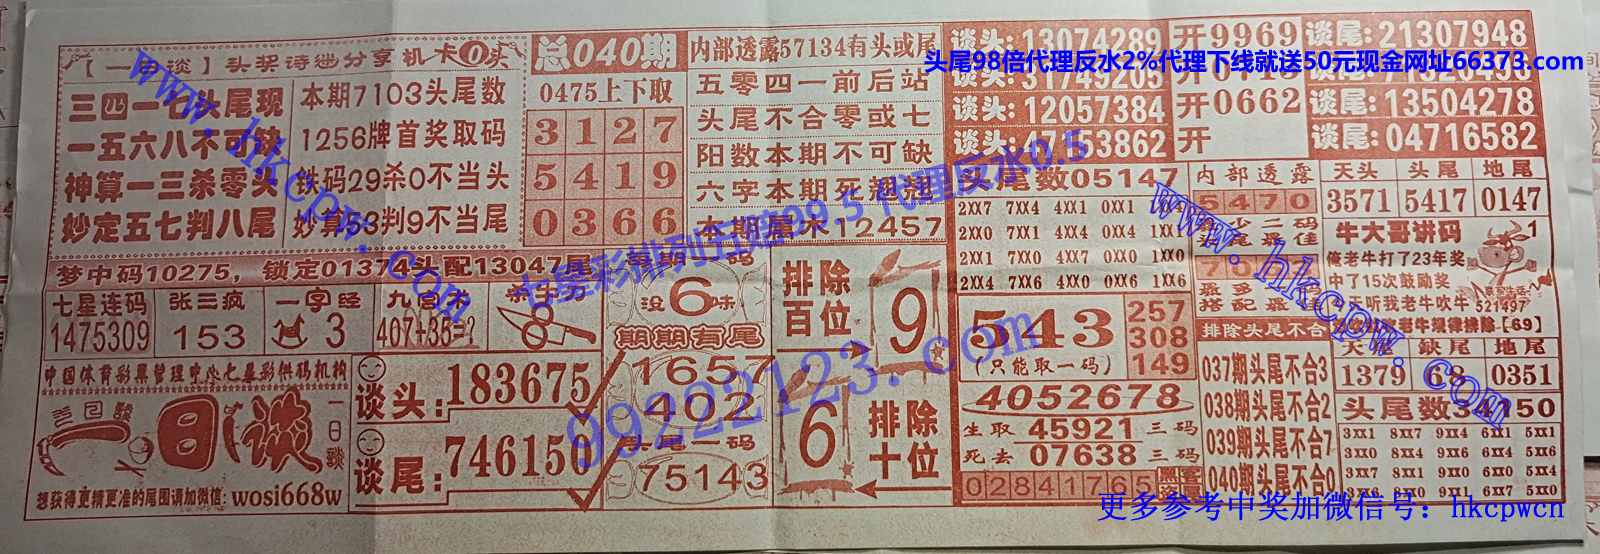 【一日谈】头奖诗谜分享机卡0头
三四一七头尾现
一五六八不可缺
神算一三杀零头
妙定五七判八尾
本期7103头尾数
1256牌首奖取码
铁码29杀0不当头
妙算53判9不当尾
总040期
0475上下取
3127
5419
0366
内部透露57134有头或尾
五零四一前后站
头尾不合零或七
阳数本期不可缺
六字本期死翘翘
本期属木12457
梦中码10275，锁定01374头配13047尾
七星连码
1475309
张三疯
153
一字经
3
407+35=?
没6味
期期有尾
1657
402
头尾一码
75143
中国体育彩票管理中心七星彩供码机构
一日谈
一日谈
想获得更精更准的尾围请加微信: wosi668w
谈头: 183675
谈尾: 746150
排除百位
9
6
排除十位
谈头: 13074289 开9969 谈尾: 21307948
谈头: 31749205
谈头: 12057384 开0662 谈尾: 13504278
谈头: 47153862 开 谈尾: 04716582
头尾数05147
2XX0 7XX1 4XX0 0XX4 1XX1
2XX1 7XX4 4XX7 0XX0 1XX0
2XX4 7XX6 4XX0 0XX6 1XX6
543
(只能取一码)
257
308
149
4052678
生取45921三码
死去07638三码
02841765
内部透露
5470
排除头尾不合
037期头尾不合3
038期头尾不合2
039期头尾不合7
040期头尾不合0
天头 头尾 地尾
3571 5417 0147
牛大哥讲码
俺老牛打了23年奖
中了15次鼓励奖
今天听我老牛吹牛
521497
老牛规律排除【69】
缺尾 地尾
1379 68 0351
头尾数34150
3XX1 8XX7 9XX4 6XX1 5XX1
3XX0 8XX4 9XX6 6XX4 5XX4
头尾98倍代理反水2%代理下线就送50元现金网址66373.com
www.hkcpw.com
七星彩排列五赔99.5 代理反水0.5
99222123.com
www.hkcpw.com
更多参考中奖加微信号: hkcpwcn